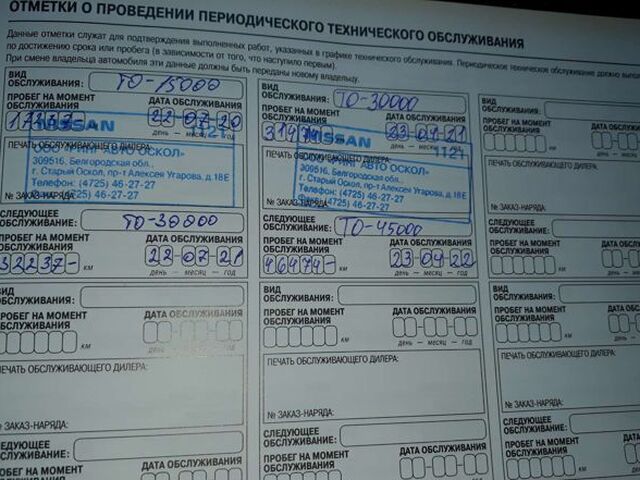 ОТМЕТКИ О ПРОВЕДЕНИИ ПЕРИОДИЧЕСКОГО ТЕХНИЧЕСКОГО ОБСЛУЖИВАНИЯ
Данные отметки служат для подтверждения выполненных работ, указанных в графике технического обслуживания. Периодическое техническое обслуживание должно
по достижению срока или пробега (в зависимости от того, что наступило первым).
При смене владельца автомобиля эти данные должны быть переданы новому владельцу.
ВИД ОБСЛУЖИВАНИЯ: ТО-15000
ПРОБЕГ НА МОМЕНТ ОБСЛУЖИВАНИЯ: 17237-
ДАТА ОБСЛУЖИВАНИЯ 22-07-20
день — месяц — год
NISSAN
1121
ПЕЧАТЬ ОБСЛУЖИВАЮЩЕГО ДИЛЕРА:
ООО "РИНГ АВТО ОСКОЛ"
309516, Белгородская обл.,
г. Старый Оскол, пр-т Алексея Угарова, д.18Е
Телефон: (4725) 46-27-27
(4725) 46-27-27
№ ЗАКАЗ-НАРЯДА:
СЛЕДУЮЩЕЕ ОБСЛУЖИВАНИЕ: ТО-30000
ПРОБЕГ НА МОМЕНТ ОБСЛУЖИВАНИЯ 32237- км
ДАТА ОБСЛУЖИВАНИЯ 22-07-21
день — месяц — год
ВИД ОБСЛУЖИВАНИЯ:
ПРОБЕГ НА МОМЕНТ ОБСЛУЖИВАНИЯ: км
ДАТА ОБСЛУЖИВАНИЯ
день — месяц — год
ПЕЧАТЬ ОБСЛУЖИВАЮЩЕГО ДИЛЕРА:
№ ЗАКАЗ-НАРЯДА:
СЛЕДУЮЩЕЕ ОБСЛУЖИВАНИЕ:
ПРОБЕГ НА МОМЕНТ
ДАТА ОБСЛУЖИВАНИЯ
ВИД ОБСЛУЖИВАНИЯ: ТО-30000
ПРОБЕГ НА МОМЕНТ ОБСЛУЖИВАНИЯ: 31474
ДАТА ОБСЛУЖИВАНИЯ 23-04-21
день — месяц — год
NISSAN
1121
ПЕЧАТЬ ОБСЛУЖИВАЮЩЕГО ДИЛЕРА:
ООО "РИНГ АВТО ОСКОЛ"
309516, Белгородская обл.,
г. Старый Оскол, пр-т Алексея Угарова, д.18Е
Телефон: (4725) 46-27-27
(4725) 46-27-27
№ ЗАКАЗ-НАРЯДА:
СЛЕДУЮЩЕЕ ОБСЛУЖИВАНИЕ: ТО-45000
ПРОБЕГ НА МОМЕНТ ОБСЛУЖИВАНИЯ 46474- км
ДАТА ОБСЛУЖИВАНИЯ 23-04-22
день — месяц — год
ВИД ОБСЛУЖИВАНИЯ:
ПРОБЕГ НА МОМЕНТ ОБСЛУЖИВАНИЯ: км
ДАТА ОБСЛУЖИВАНИЯ
день — месяц — год
ПЕЧАТЬ ОБСЛУЖИВАЮЩЕГО ДИЛЕРА:
№ ЗАКАЗ-НАРЯДА:
СЛЕДУЮЩЕЕ ОБСЛУЖИВАНИЕ:
ПРОБЕГ НА МОМЕНТ ОБСЛУЖИВАНИЯ
ДАТА ОБСЛУЖИВАНИЯ
ВИД ОБСЛУЖИВАНИЯ:
ПРОБЕГ НА МОМЕНТ ОБСЛУЖИВАНИЯ: км
ДАТА
день
ПЕЧАТЬ ОБСЛУЖИВАЮЩЕГО ДИЛЕРА:
№ ЗАКАЗ-НАРЯДА:
СЛЕДУЮЩЕЕ ОБСЛУЖИВАНИЕ:
ПРОБЕГ НА МОМЕНТ ОБСЛУЖИВАНИЯ км
ДАТА
день
ВИД ОБСЛУЖИВАНИЯ:
ПРОБЕГ НА МОМЕНТ ОБСЛУЖИВАНИЯ: км
ДАТА
ПЕЧАТЬ ОБСЛУЖИВАЮЩЕГО
№ ЗАКАЗ-НАРЯДА:
СЛЕДУЮЩЕЕ ОБСЛУЖИВАНИЕ:
ПРОБЕГ НА МОМЕНТ ОБСЛУЖИВАНИЯ